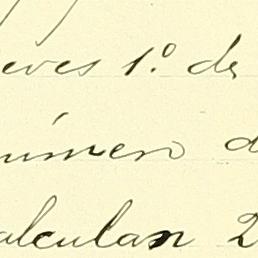 eves 1.º de
úmero d
alculan 2